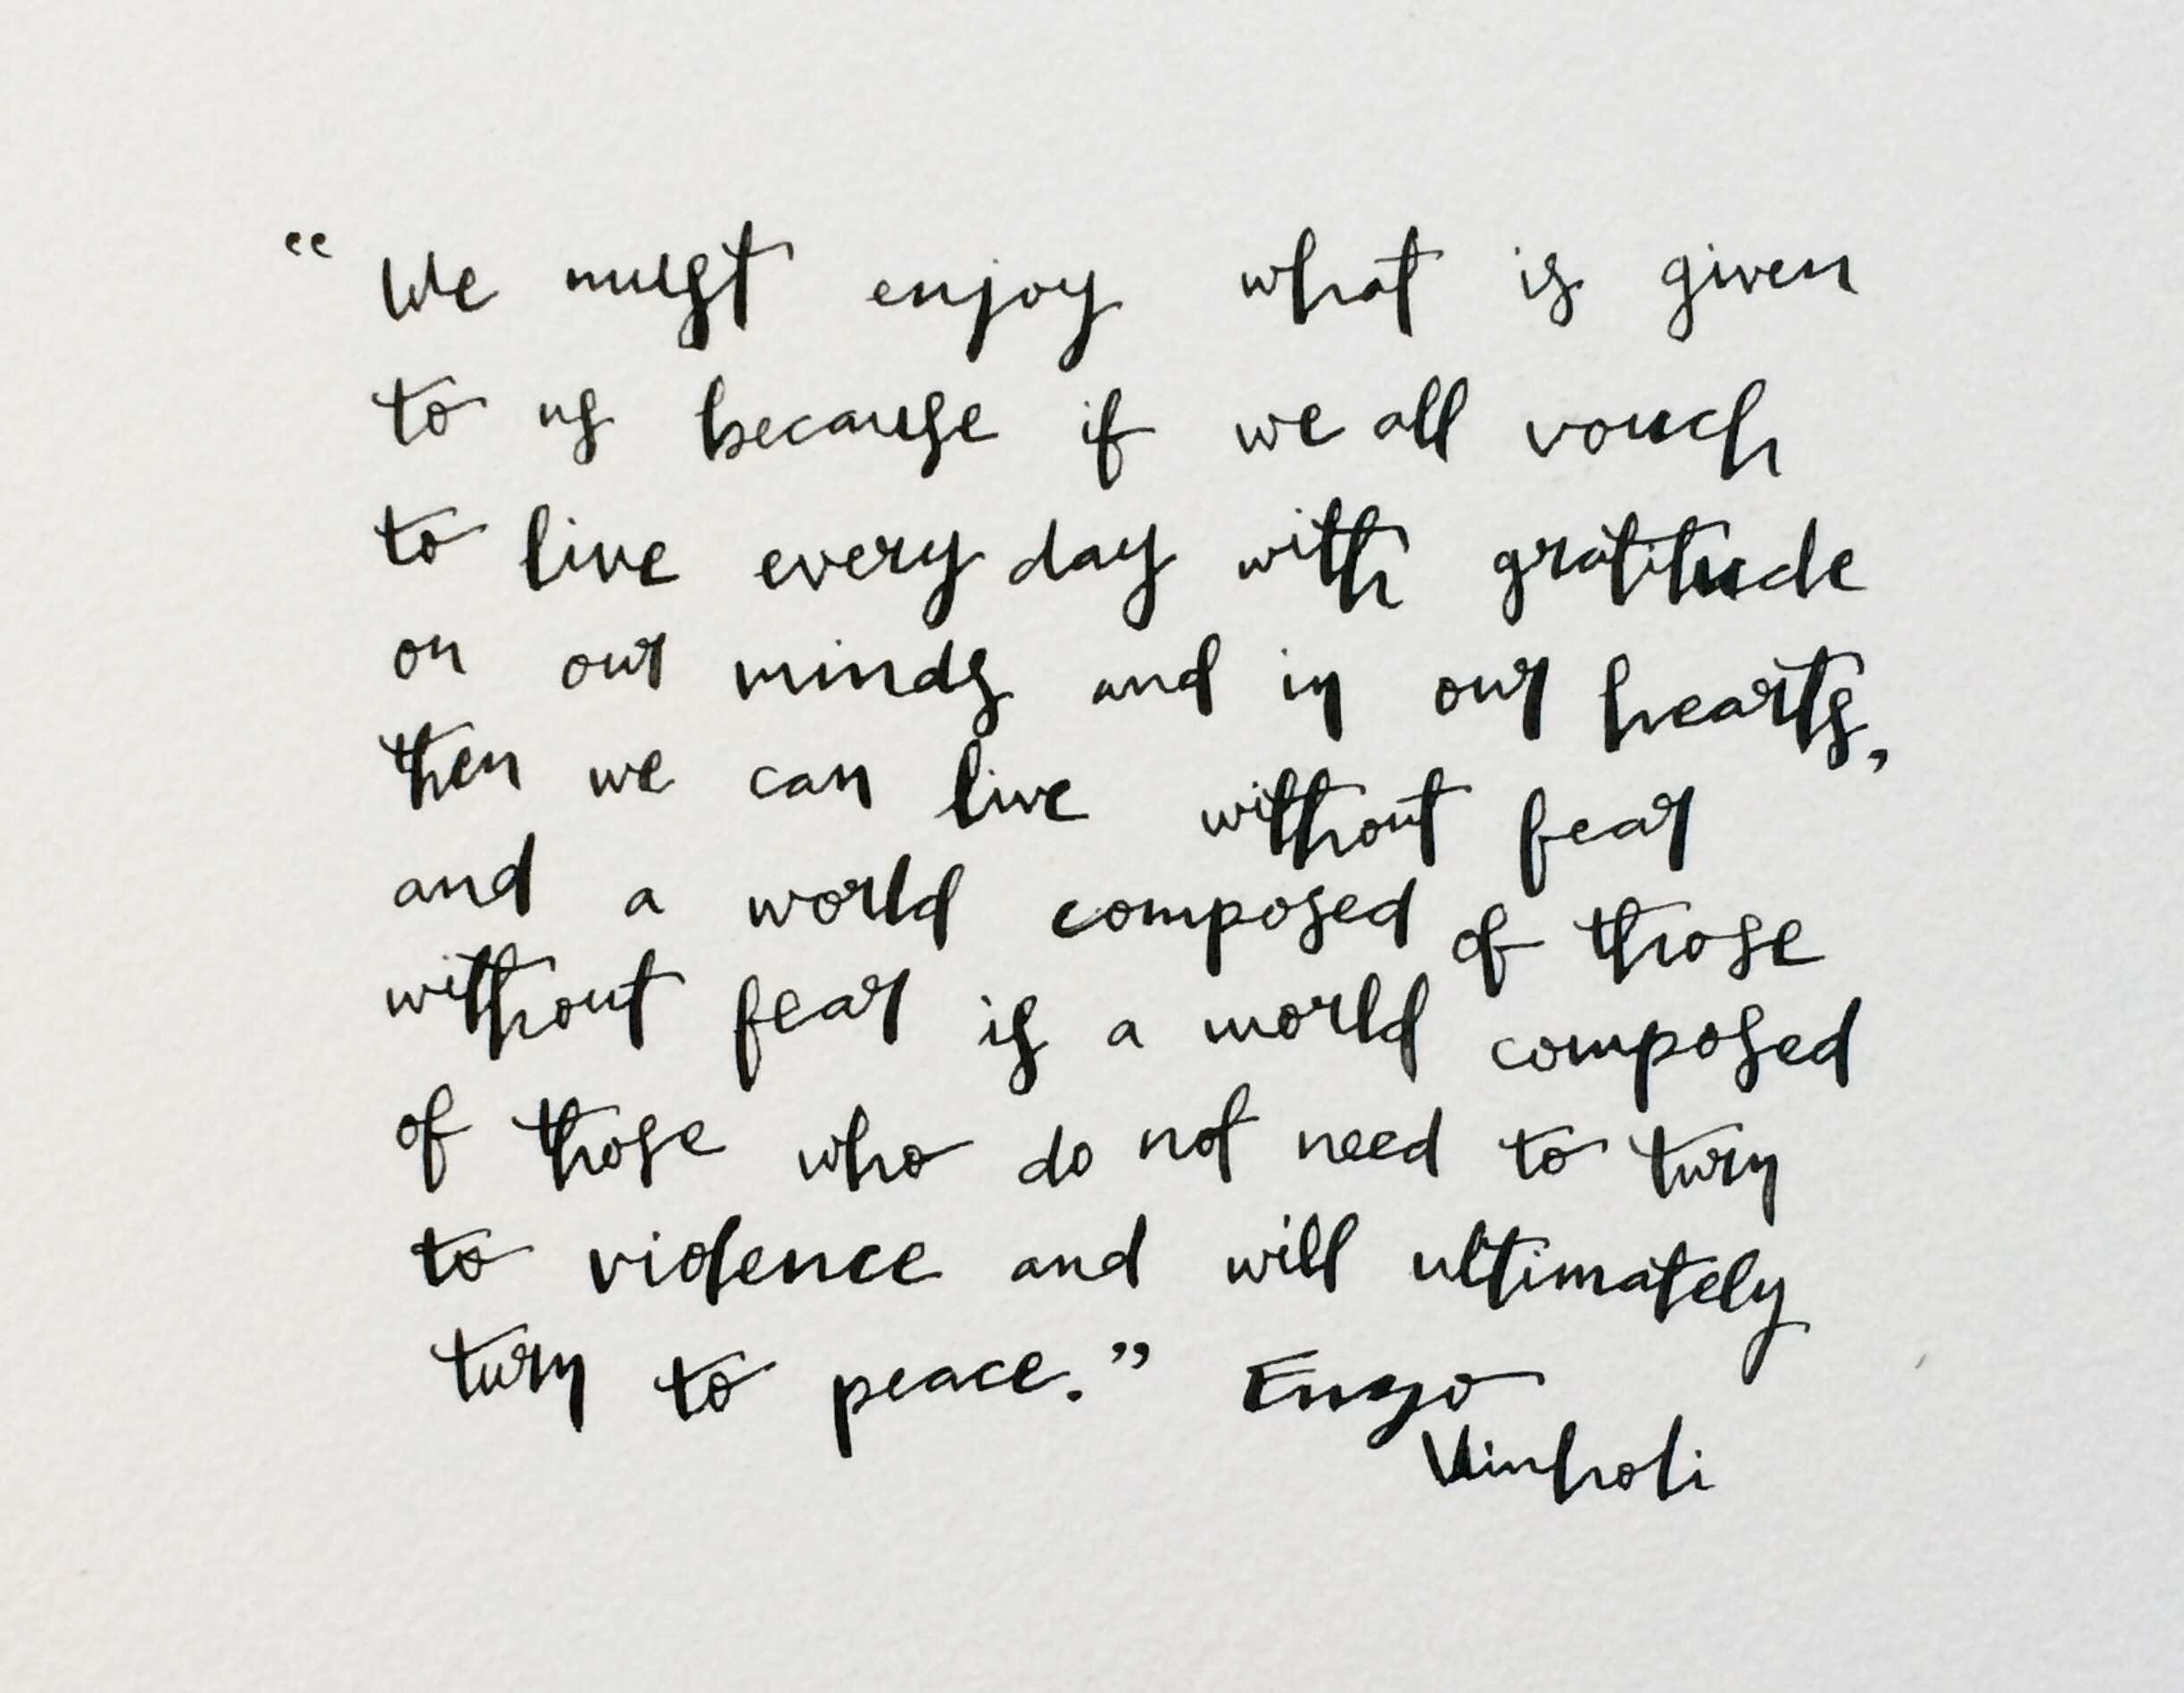 “We must enjoy what is given
to us because if we all vouch
to live every day with gratitude
on our minds and in our hearts,
then we can live without fear
and a world composed of those
without fear is a world composed
of those who do not need to turn
to violence and will ultimately
turn to peace.” Enzo
Vinholi